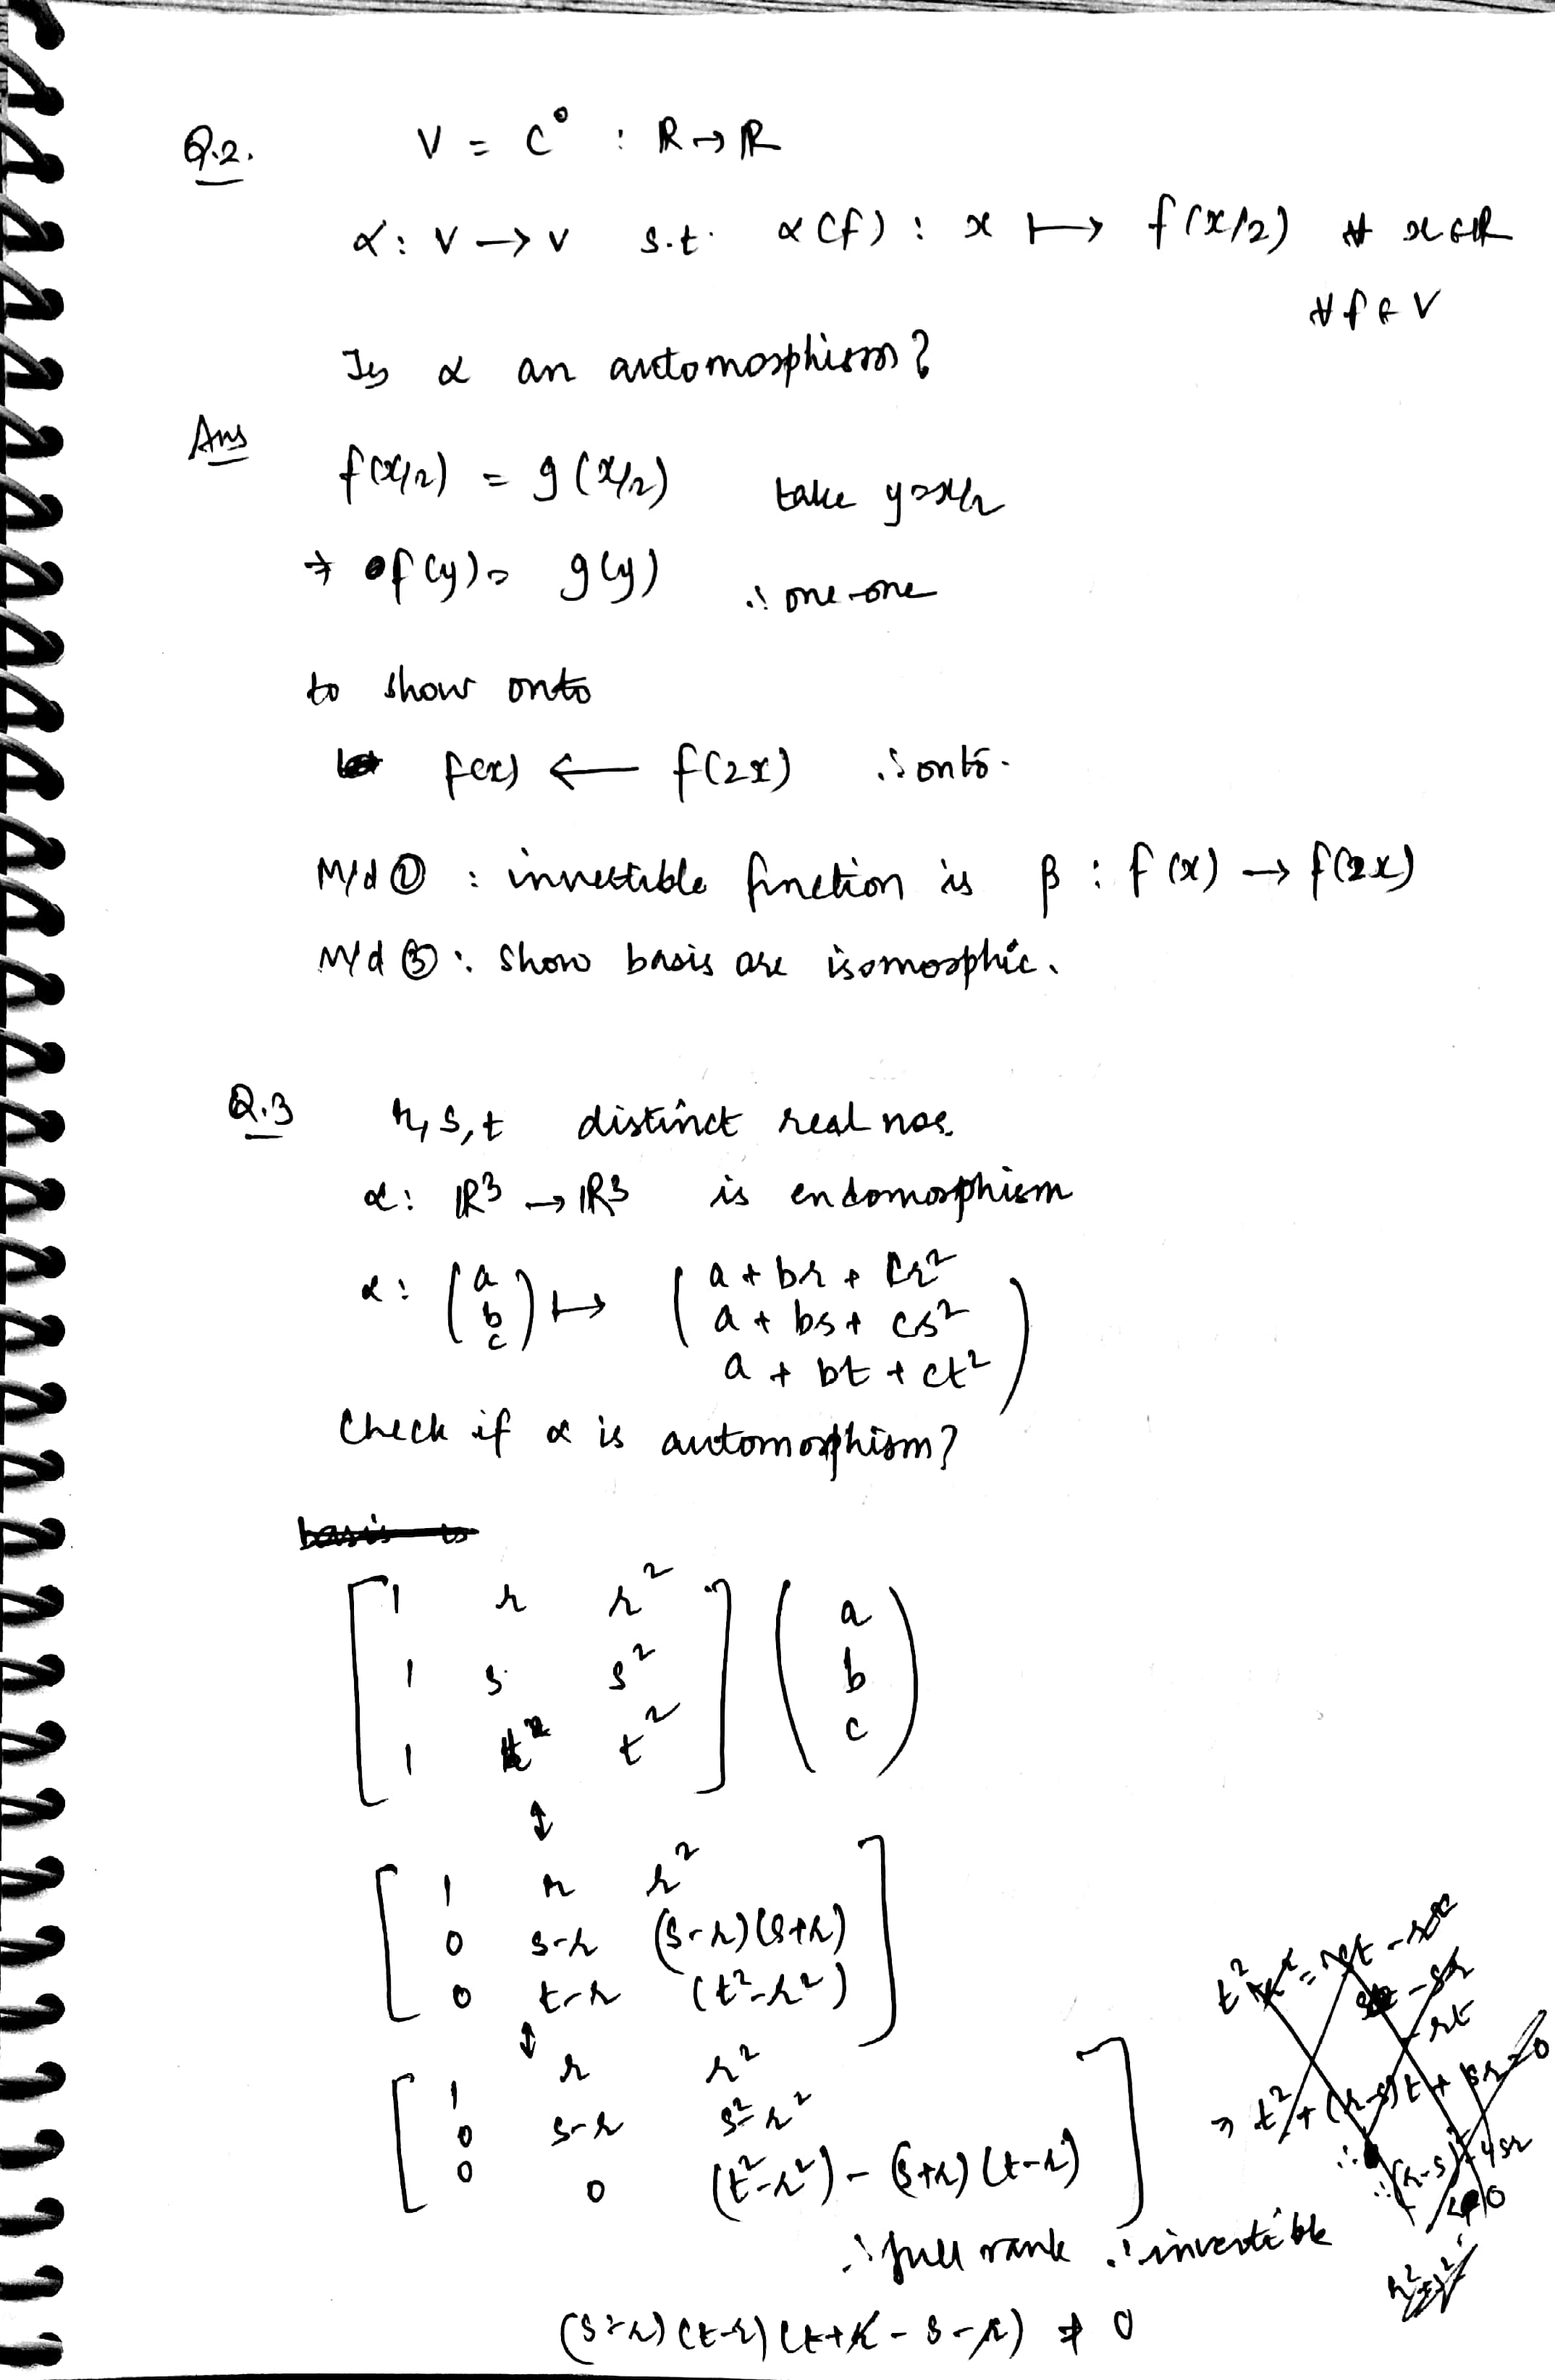 Q.2. V = C° : R → R
α: V → V s.t. α(f) : x ↦ f(x/2) ∀ x ∈ R
∀ f ∈ V
Is α an automorphism?
Ans
f(x/2) = g(x/2) take y=x/2
⇒ f(y) = g(y) ∴ one-one
to show onto
f(x) ← f(2x) ∴ onto.
M/d ② : invertible function is β : f(x) → f(2x)
M/d ③ : Show basis are isomorphic.
Q.3 r, s, t distinct real nos.
α: R³ → R³ is endomorphism
α: (a b c) ↦ ( a + br + cr²
a + bs + cs²
a + bt + ct² )
Check if α is automorphism?
basis is
[ 1 r r² ] ( a )
1 s s² b
1 t t² c
↕
[ 1 r r² ]
0 s-r (s-r)(s+r)
0 t-r (t²-r²)
↕
[ 1 r r² ]
0 s-r s²-r²
0 0 (t²-r²) - (s+r)(t-r)
∴ full rank ∴ invertible
(s-r)(t-r)(t+r-s-r) ≠ 0